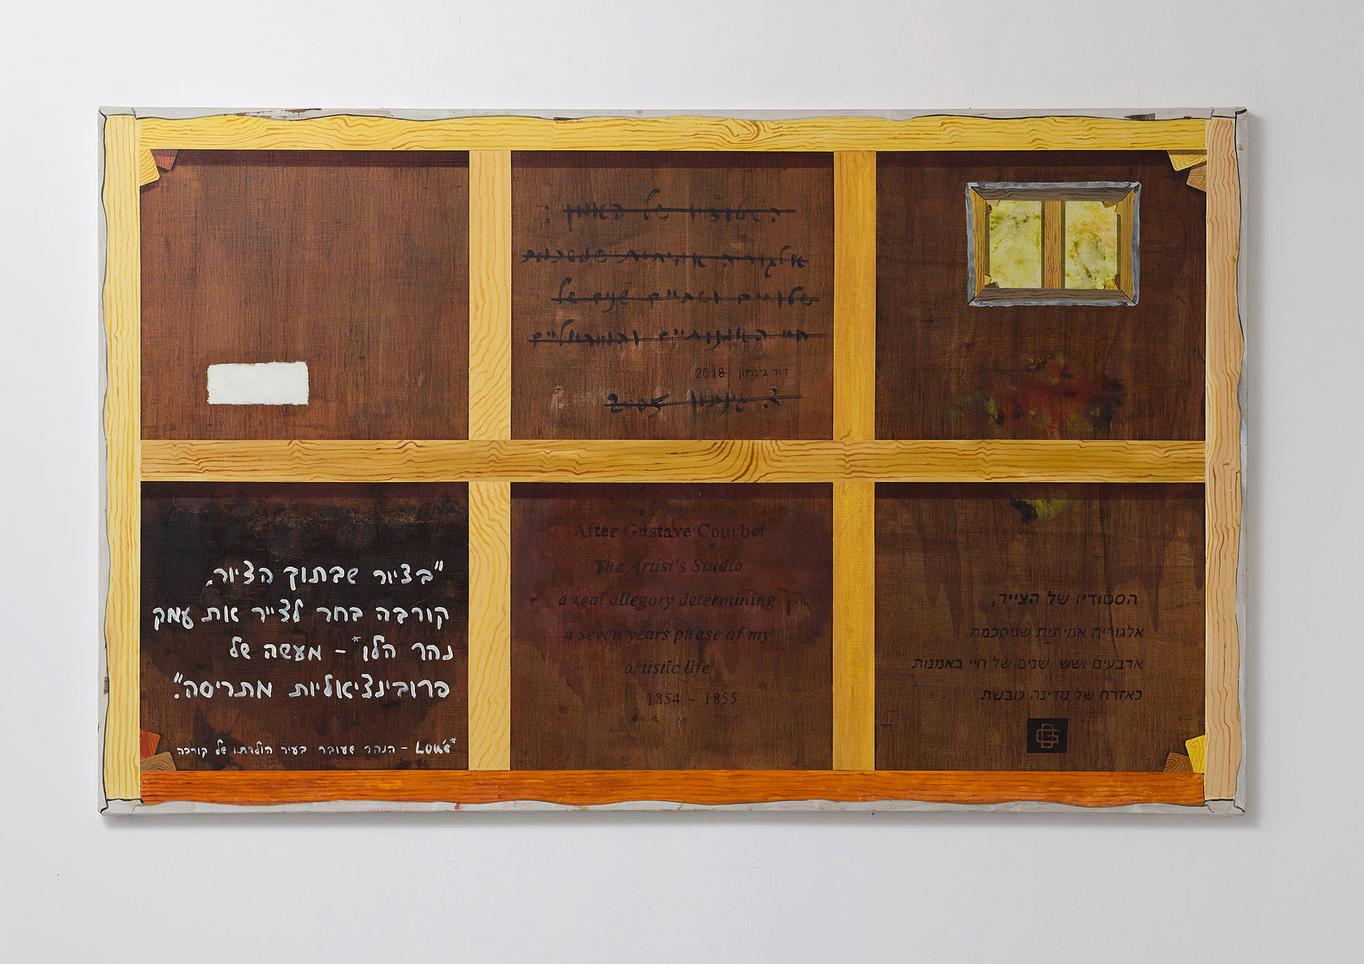 הסטודיו של האמן:
אלגוריה אמיתית שמסכמת
שלושים ושתיים שנים של
חיי האמנותיים והמוראליים
דוד גינתון 2018
ד. גינתון
"בציור שבתוך הציור,
קורבה בחר לצייר את עמק
נהר הלו* - מעשה של
פרובינציאליות מתריסה".
*Loue - הנהר שעובר בעיר הולדתו של קורבה
After Gustave Courbet
The Artist's Studio
a real allegory determining
a seven years phase of my
artistic life
1854 - 1855
הסטודיו של הצייר,
אלגוריה אמיתית שמסכמת
ארבעים ושש שנים של חיי באמנות
כאזרח של מדינה כובשת